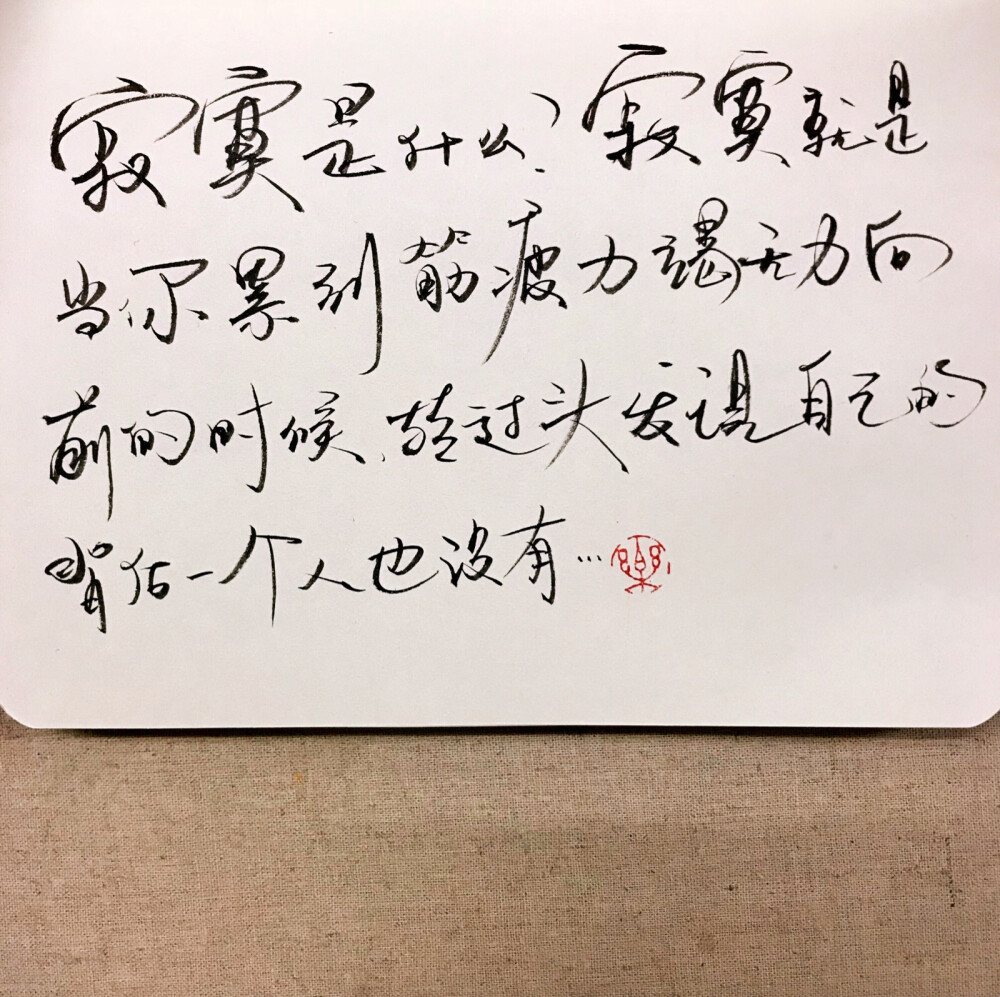 寂寞是什么？寂寞就是
当你累到筋疲力竭无力向
前的时候、转过头发现自己的
背后一个人也没有…